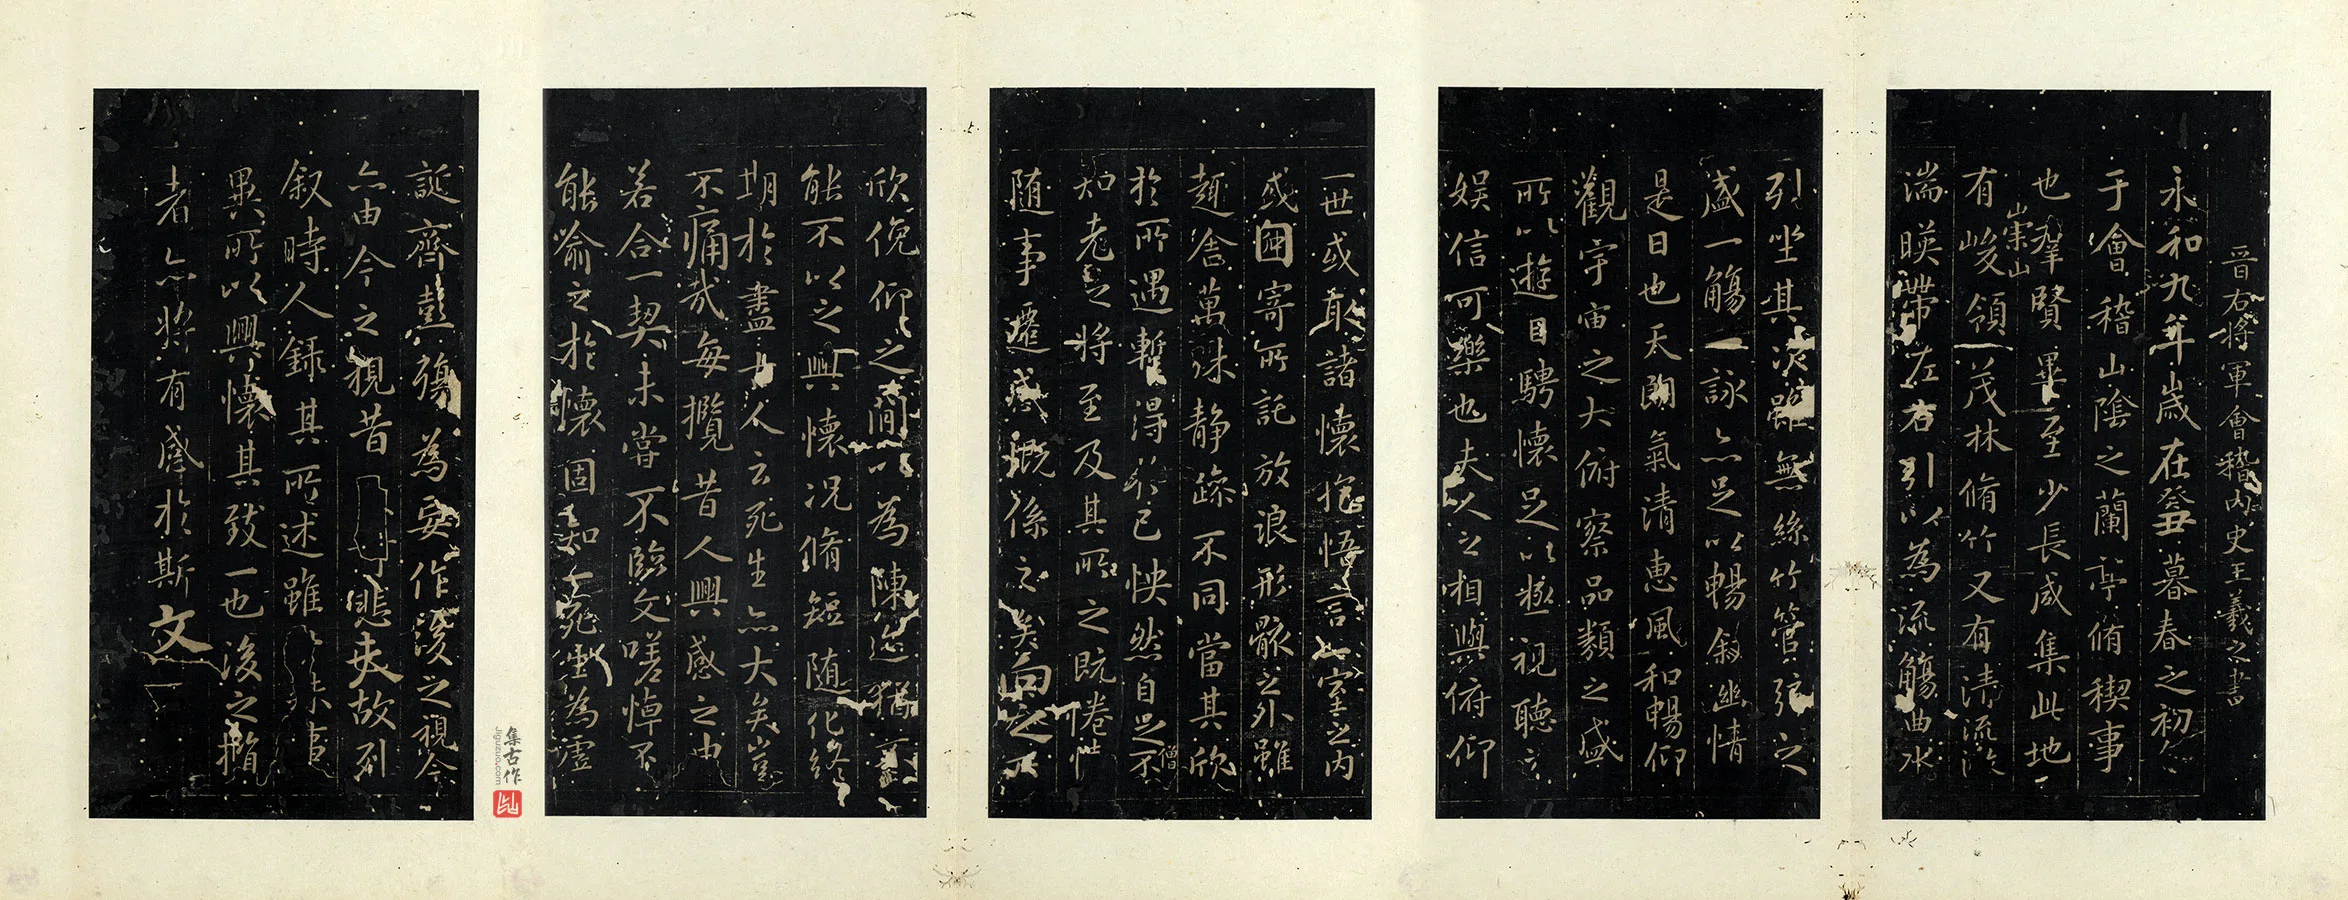 晉右將軍會稽內史王羲之書
永和九年歲在癸丑暮春之初
于會稽山陰之蘭亭脩稧事
也羣賢畢至少長咸集此地
有崇山峻領茂林脩竹又有清流激
湍暎帶左右引以為流觴曲水
列坐其次雖無絲竹管弦之
盛一觴一詠亦足以暢敘幽情
是日也天朗氣清惠風和暢仰
觀宇宙之大俯察品類之盛
所以遊目騁懷足以極視聽之
娛信可樂也夫人之相與俯仰
一世或取諸懷抱悟言一室之內
或因寄所託放浪形骸之外雖
趣舍萬殊靜躁不同當其欣
於所遇暫得於己怏然自足不
僧
知老之將至及其所之既惓情
隨事遷感慨係之矣向之
欣俛仰之間以為陳迹猶不
能不以之興懷況脩短隨化終
期於盡古人云死生亦大矣豈
不痛哉每攬昔人興感之由
若合一契未嘗不臨文嗟悼不
能喻之於懷固知一死生為虛
誕齊彭殤為妄作後之視今
亦由今之視昔悲夫故列
叙時人錄其所述雖殊事
異所以興懷其致一也後之攬
者亦將有感於斯文
集古作
Jiguzuo.com